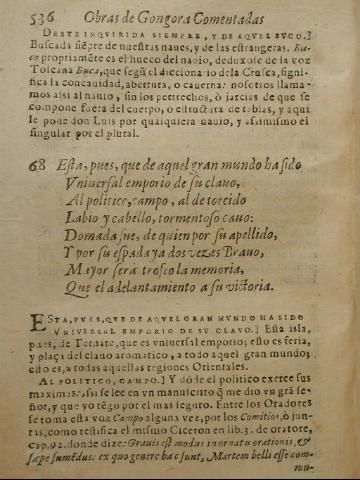 536 Obras de Gongora Comentadas
DESTE INQVIRIDA SIEMPRE, Y DE AQVEL BVCO.]
Buscada siẽpre de nuestras naues, y de las estrangeras. Bu-
co propriamẽte es el hueco del nauio, deduxose de la voz
Toscana Buca, que segũ el diccionario dela Crusca, signi-
fica la concauidad, abertura, o cauerna: nosotros llama-
mos assi al nauio, sin los petrechos, ò jarcias de que se
compone fuera del cuerpo, o estructura de tablas, y aqui
le pone don Luis por qualquiera nauio, y assimismo el
singular por el plural.
68 Esta, pues, que de aquel gran mundo ha sido
Vniuersal emporio de su clauo,
Al politico, campo, al de torcido
Labio y cabello, tormentoso cauo:
Domada fue, de quien por su apellido,
Y por su espada ya dos vezes Brauo,
Mayor serà trofeo la memoria,
Que el adelantamiento a su victoria.
ESTA, PVES, QVE DE AQVEL GRAN MVNDO HA SIDO
VNIVERSAL EMPORIO DE SV CLAVO.] Esta isla,
pues, de Ternate, que es vniuersal emporio; esto es feria,
y plaça del clauo aromatico, a todo aquel gran mundo;
esto es, a todas aquellas regiones Orientales.
AL POLITICO, CAMPO.] Y dõde el politico exerce sus
maximas: assi se lee en vn manuscrito q̃ me dio vn grã se-
ñor, y que yo tẽgo por el mas seguro. Entre los Oradores
se toma esta voz Campo alguna vez, por los Comicios, ò jun-
tas, como testifica el mismo Ciceron en lib.3. de oratore,
cap.92. donde dize: Grauis est modus in ornatu orationis, &
sæpe sumẽdus: ex quo genere hæc sunt, Martem belli esse com-
mu-